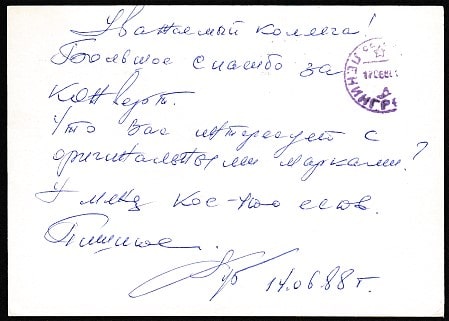 Уважаемый коллега!
Большое спасибо за
конверт.
Что Вас интересует с
оригинальными марками?
У меня кое-что есть.
Пишите.
14.06.88 г.
ЛЕНИНГР